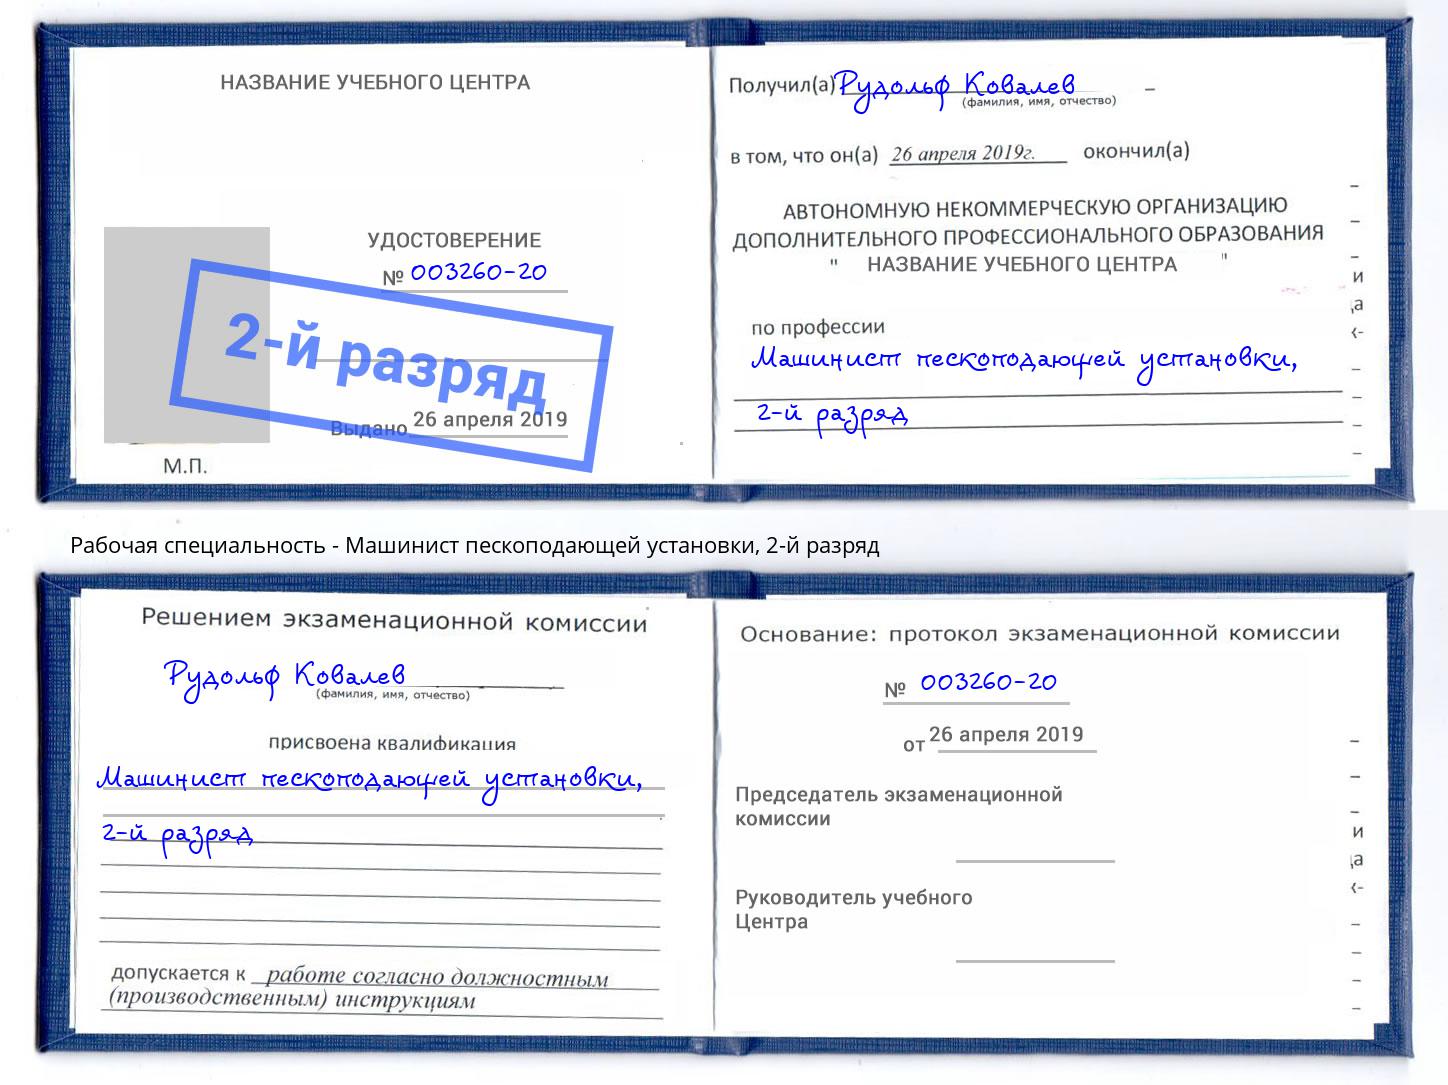 НАЗВАНИЕ УЧЕБНОГО ЦЕНТРА
УДОСТОВЕРЕНИЕ
№ 003260-20
2-й разряд
Выдано 26 апреля 2019
М.П.
Получил(а) Рудольф Ковалев
(фамилия, имя, отчество)
в том, что он(а) 26 апреля 2019г. окончил(а)
АВТОНОМНУЮ НЕКОММЕРЧЕСКУЮ ОРГАНИЗАЦИЮ
ДОПОЛНИТЕЛЬНОГО ПРОФЕССИОНАЛЬНОГО ОБРАЗОВАНИЯ
" НАЗВАНИЕ УЧЕБНОГО ЦЕНТРА "
по профессии
Машинист пескоподающей установки,
2-й разряд
Рабочая специальность - Машинист пескоподающей установки, 2-й разряд
Решением экзаменационной комиссии
Рудольф Ковалев
(фамилия, имя, отчество)
присвоена квалификация
Машинист пескоподающей установки,
2-й разряд
допускается к работе согласно должностным
(производственным) инструкциям
Основание: протокол экзаменационной комиссии
№ 003260-20
от 26 апреля 2019
Председатель экзаменационной
комиссии
Руководитель учебного
Центра